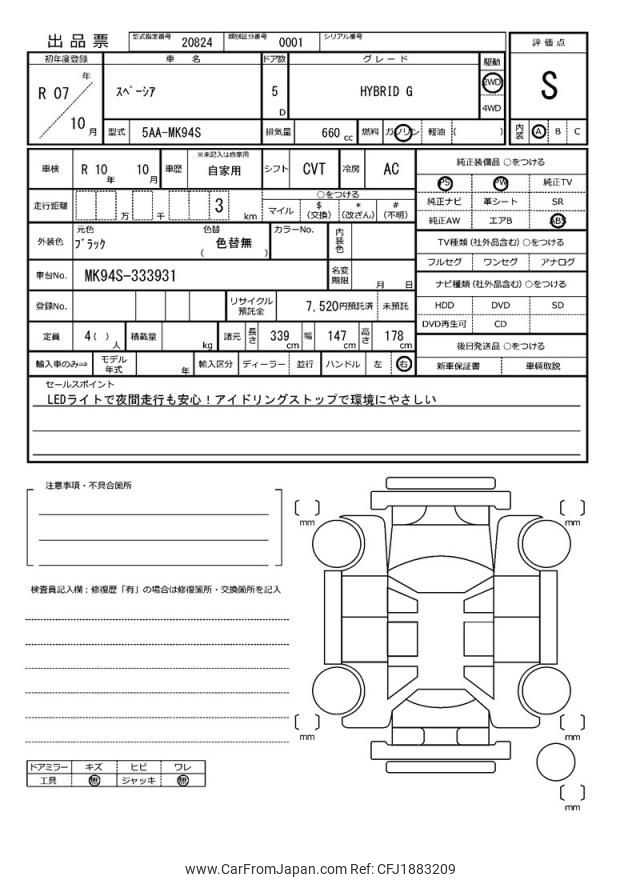 出品票 型式指定番号 20824 類別区分番号 0001 シリアル番号
評価点
S
内装 A B C
初年度登録 車名 ドア数 グレード 駆動
R 07 年 10 月
スペーシア 5 D HYBRID G 2WD 4WD
型式 5AA-MK94S 排気量 660 cc 燃料 ガソリン 軽油 ( )
車検 R 10 年 10 月 車歴 ※未記入は自家用 自家用 シフト CVT 冷房 AC
走行距離 万 千 3 km ○をつける
マイル $(交換) *(改ざん) #(不明)
外装色 元色 ブラック 色替 色替無 ( ) カラーNo. 内装色
車台No. MK94S-333931 名変期限 月 日
登録No. リサイクル預託金 7,520円預託済 未預託
定員 4( ) 人 積載量 kg 諸元 長さ 339 cm 幅 147 cm 高さ 178 cm
輸入車のみ⇒ モデル年式 年 輸入区分 ディーラー 並行 ハンドル 左 右
純正装備品 ○をつける
PS PW 純正TV
純正ナビ 革シート SR
純正AW エアB ABS
TV種類(社外品含む)○をつける
フルセグ ワンセグ アナログ
ナビ種類(社外品含む)○をつける
HDD DVD SD
DVD再生可 CD
後日発送品 ○をつける
新車保証書 車輌取説
セールスポイント
LEDライトで夜間走行も安心!アイドリングストップで環境にやさしい
注意事項・不具合箇所
検査員記入欄:修復歴「有」の場合は修復箇所・交換箇所を記入
[ ] mm [ ] mm
[ ] mm [ ] mm
[ ] mm
ドアミラー キズ ヒビ ワレ
工具 無 ジャッキ 無
www.CarFromJapan.com Ref: CFJ1883209